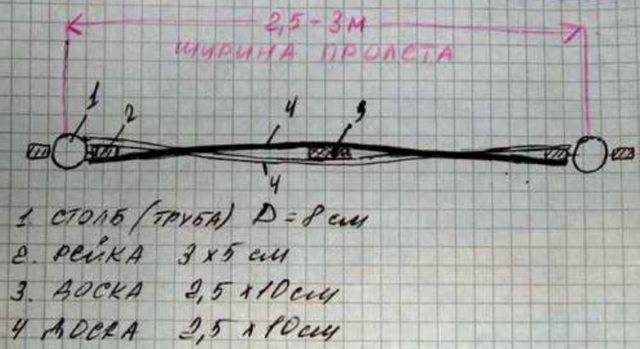 2,5 - 3 м
ШИРИНА ПРОЛЕТА
1 2 4 3
4
1. СТОЛБ (ТРУБА) D = 8 см
2. РЕЙКА 3 х 5 см
3. ДОСКА 2,5 х 10 см
4 ДОСКА 2,5 х 10 см